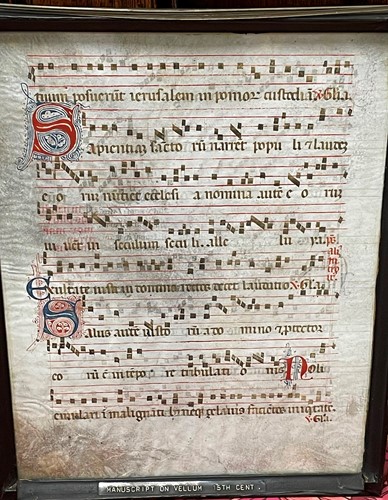 tuum posuerūt ierusalem in pomoȝ custodiā Glīa
Sapientiaȝ sācto rū narret popu li ⁊ laudeȝ
e o rū nūtiet ecclesi a nomina autē e o rū
uiuēt in seculum seculi. alle lu ya
Exultate iusti in domino rectos decet laudatio Glīa
Salus autē iusto rū a do mino ⁊ ptector
eo rū ē in tēpo re tribulati o nis Noli
emulari ī malignātibȝ neq zelaueris facientes iniqtatē.
Glīa
MANUSCRIPT ON VELLUM 15TH CENT.